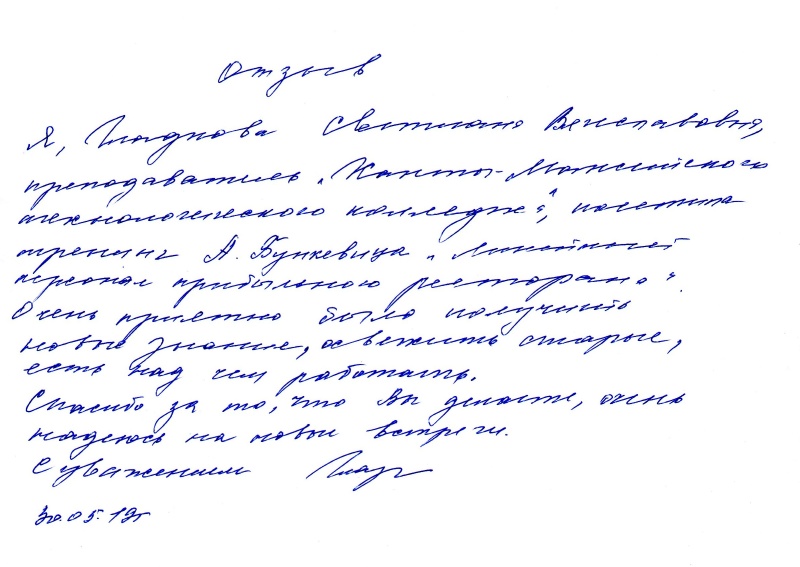 Отзыв
Я, Гладкова Светлана Вячеславовна,
преподаватель „Ханты-Мансийского
технологического колледжа", посетила
тренинг А. Бункевича „Линейный
персонал прибыльного ресторана".
Очень приятно было получить
новые знание, освежить старые,
есть над чем работать.
Спасибо за то, что Вы делаете, очень
надеюсь на новые встречи.
С уважением
30.05.19г